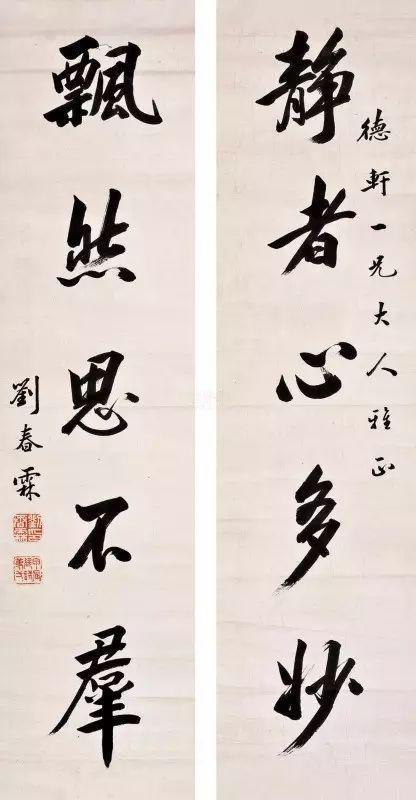 德軒一兄大人雅正
靜者心多妙
飄然思不羣
劉春霖